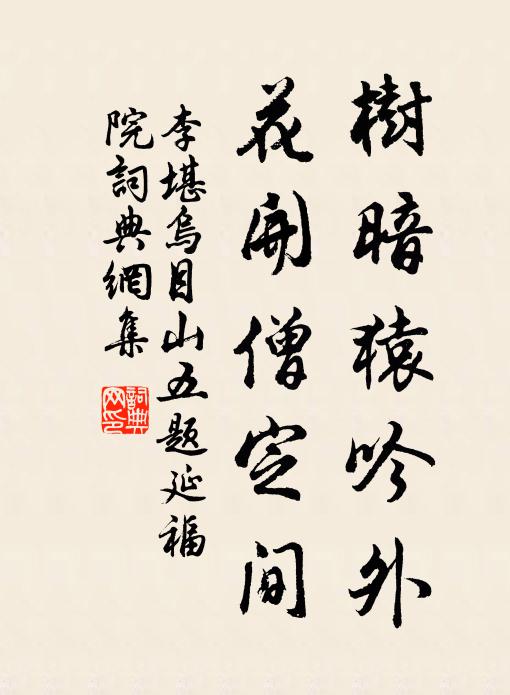 樹暗猿吟外
花開僧定间
李堪烏目山五题延福
院詞典網集
詞典
网印